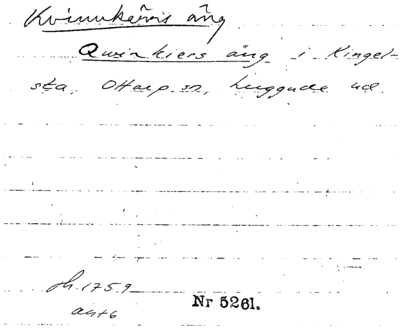 Kvinnkärrs äng
Qwinkiers äng i Kingel-
sta, Ottarp sn, Luggude hd.
sk. 1759
akt 6
Nr 5261.